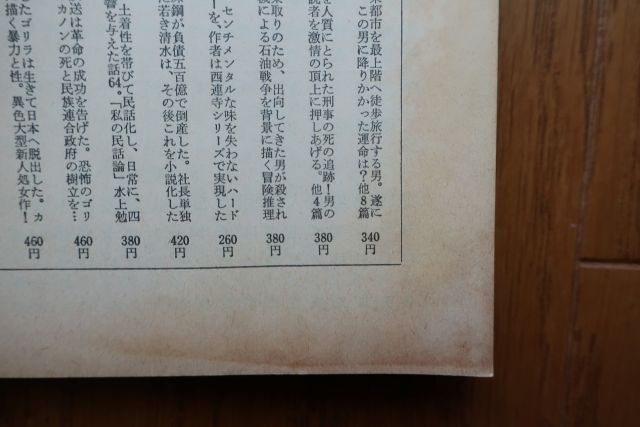 都市を最上階へ徒歩旅行する男。遂に
この男に降りかかった運命は?他8篇
340円
人質にとられた刑事の死の追跡!男の
読者を激情の頂上に押しあげる。他4篇
380円
取りのため、出向してきた男が殺され
機による石油戦争を背景に描く冒険推理
380円
センチメンタルな味を失わないハード
ーを、作者は西連寺シリーズで実現した
260円
鋼が負債五百億で倒産した。社長単独
た若き清水は、その後これを小説化した
420円
土着性を帯びて民話化し、日常に、四
響を与えた話64。「私の民話論」水上勉
380円
送は革命の成功を告げた。恐怖のゴリ
カノンの死と民族連合政府の樹立を…
460円
たゴリラは生きて日本へ脱出した。カ
描く暴力と性。異色大型新人処女作!
460円